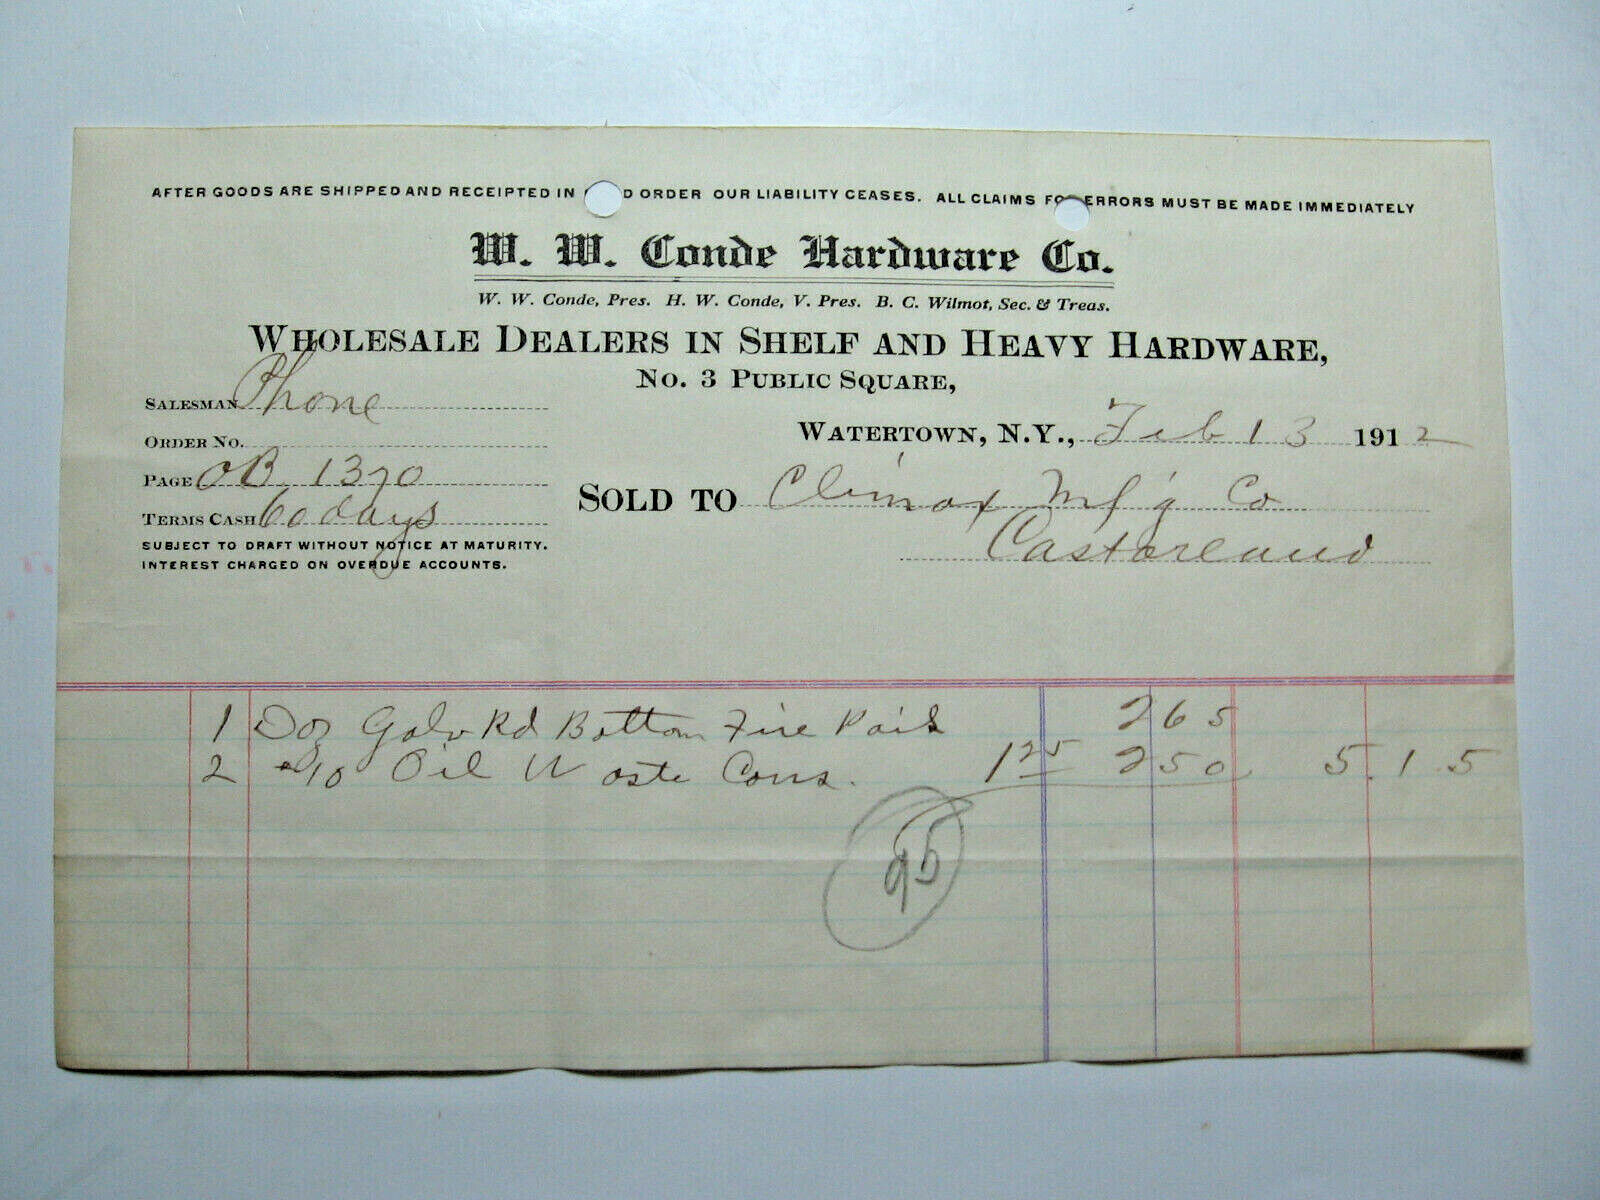 AFTER GOODS ARE SHIPPED AND RECEIPTED IN D ORDER OUR LIABILITY CEASES. ALL CLAIMS FO ERRORS MUST BE MADE IMMEDIATELY
W. W. Conde Hardware Co.
W. W. Conde, Pres. H. W. Conde, V. Pres. B. C. Wilmot, Sec. & Treas.
WHOLESALE DEALERS IN SHELF AND HEAVY HARDWARE,
NO. 3 PUBLIC SQUARE,
SALESMAN Phone
ORDER NO.
WATERTOWN, N.Y., Feb 13 1912
PAGE OB 1370
SOLD TO Climax Mf'g Co
TERMS CASH 60 days
Castorland
SUBJECT TO DRAFT WITHOUT NOTICE AT MATURITY.
INTEREST CHARGED ON OVERDUE ACCOUNTS.
1 Doz Galv Rd Bottom Fire Pails 265
2 #10 Oil Waste Cans. 1 25 250 5.15